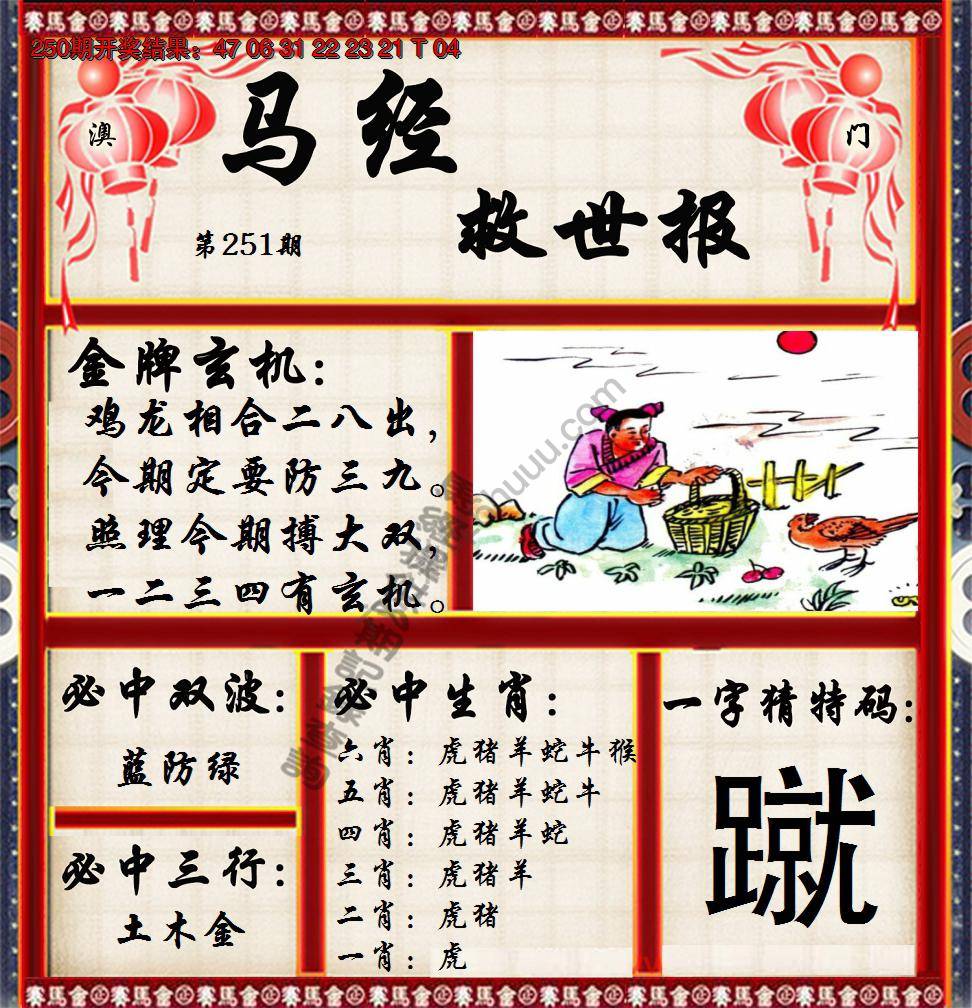 250期开奖结果：47 06 31 22 23 21 T 04
澳
门
马经
救世报
第251期
金牌玄机：
鸡龙相合二八出，
今期定要防三九。
照理今期搏大双，
一二三四有玄机。
必中双波：
蓝防绿
必中三行：
土木金
必中生肖：
六肖：虎猪羊蛇牛猴
五肖：虎猪羊蛇牛
四肖：虎猪羊蛇
三肖：虎猪羊
二肖：虎猪
一肖：虎
一字猜特码：
蹴